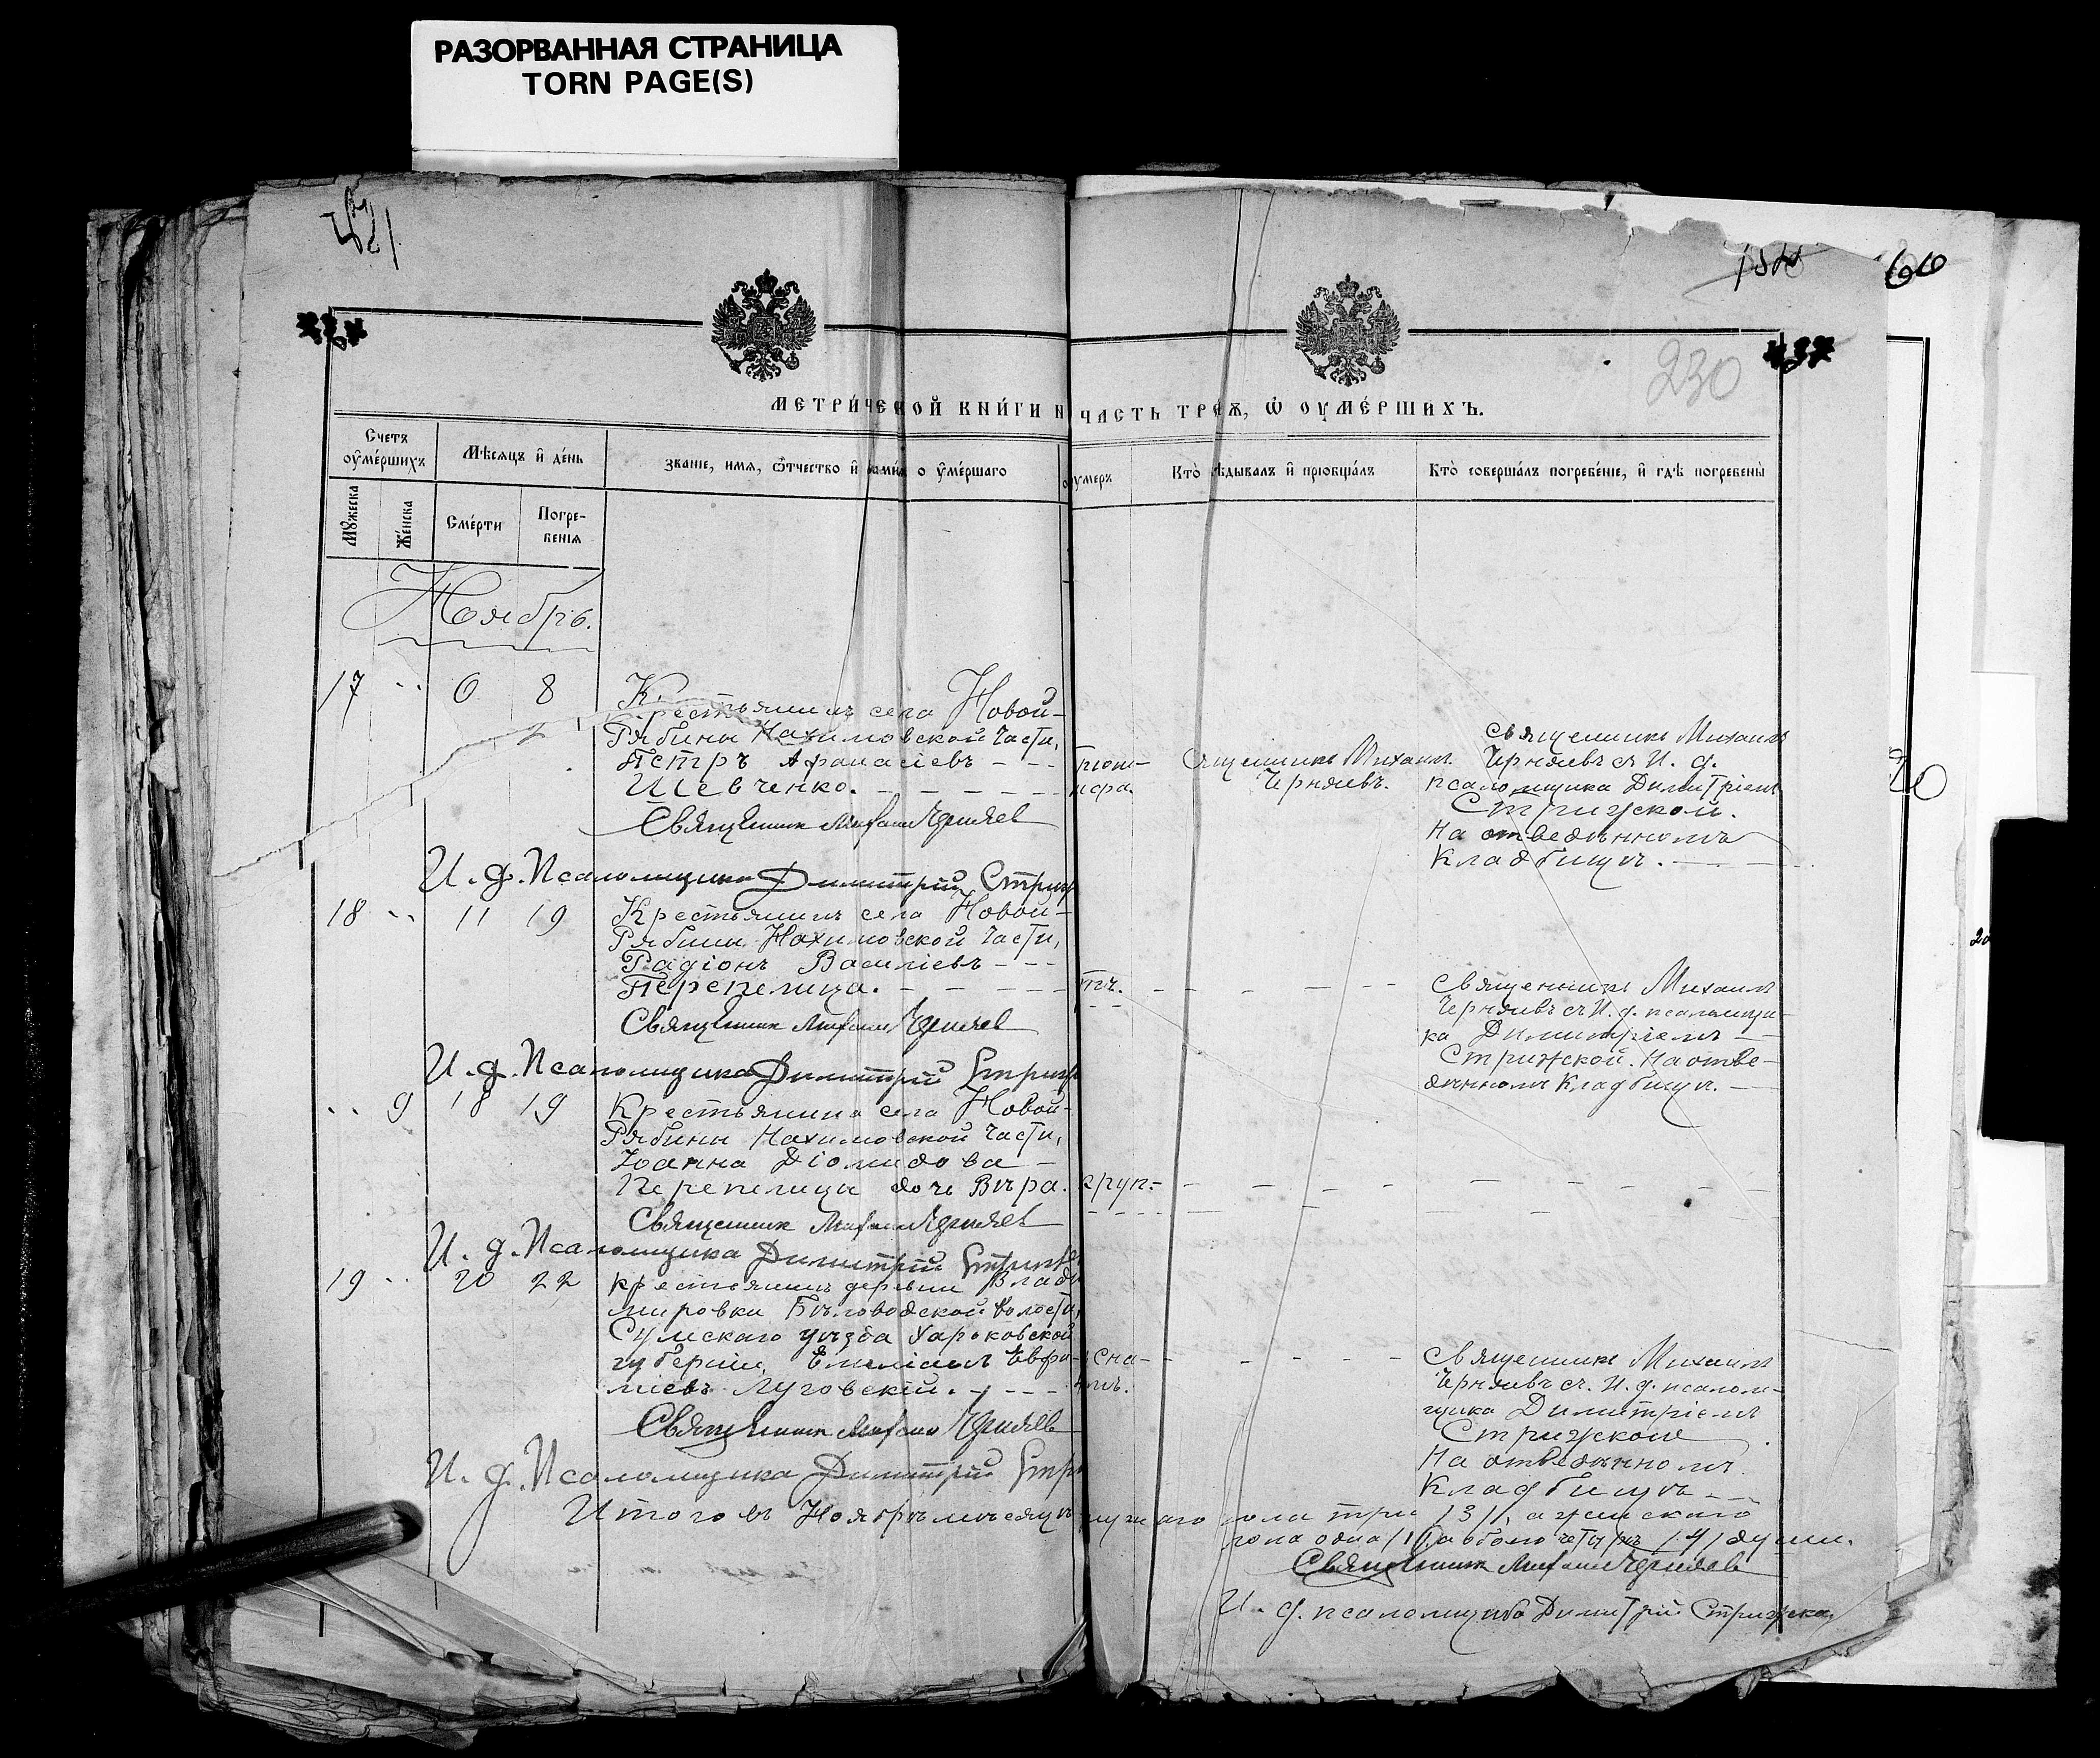 РАЗОРВАННАЯ СТРАНИЦА
TORN PAGE(S)
230
60
МЕТРИ́ЧЕСКОЙ КНИ́ГИ Н
ЧАСТЬ ТРЕ́Я, Ѡ ОУМЕ́РШИХЪ.
Счетъ оу҆ме́ршихъ
Мѣ́сяцъ и҆ де́нь
Званіе, имя, ѿтчество и҆ фамилія о у҆ме́ршаго
умеръ
Кто̀ и҆сповѣ́дывалъ и҆ пріобща́лъ
Кто̀ соверша́лъ погребе́ніе, и҆ гдѣ̀ погребены̀
Мꙋжеска
Же́нска
Сме́рти
Погре-
бенія
Ноябрь.
17 " 6 8
Крестьянинъ села Новой-
Рябины Нахимовской части,
Петръ Афанасіевъ - - -
Шевченко. - - - - -
Священник Михаил Черняев
И. д. Псаломщика Димитрій Стриж
Священникъ Михаилъ
Черняевъ.
Священникъ Михаилъ
Черняевъ съ И. д.
псаломщика Димитріемъ
Стрижской.
На отведенномъ
кладбищѣ. -
18 " 11 19
Крестьянинъ села Новой-
Рябины Нахимовской части,
Радіонъ Василіевъ - - -
Перепелица. - - - - -
Священник Михаил Черняев
И. д. Псаломщика Димитрій Стриж
Священникъ Михаилъ
Черняевъ съ И. д. псаломщи-
ка Димитріемъ -
Стрижской. На отве-
денномъ кладбищѣ. -
" 9 18 19
Крестьянина села Новой-
Рябины Нахимовской части,
Іоанна Діомидова -
Перепелицы дочь Вѣра.
круп-
Священник Михаил Черняев
И. д. Псаломщика Димитрій Стриж
19 " 20 22
Крестьянинъ деревни Влади
мировки Бѣловодской волости,
Сумскаго уѣзда Харьковской
губерніи, Емиліанъ Евфи-
міевъ Луговскій. - - - -
Священник Михаил Черняев
И. д. Псаломщика Димитрій Стри
Священникъ Михаилъ
Черняевъ съ И. д. псалом-
щика Димитріемъ
Стрижской
На отведенномъ
кладбищѣ. -
Итого въ Ноябрѣ мѣсяцѣ мужского пола три /3/, а женскаго
пола одна /1/, а обоего четыре /4/ души.
Священник Михаил Черняев
И. д. псаломщика Димитрій Стрижской